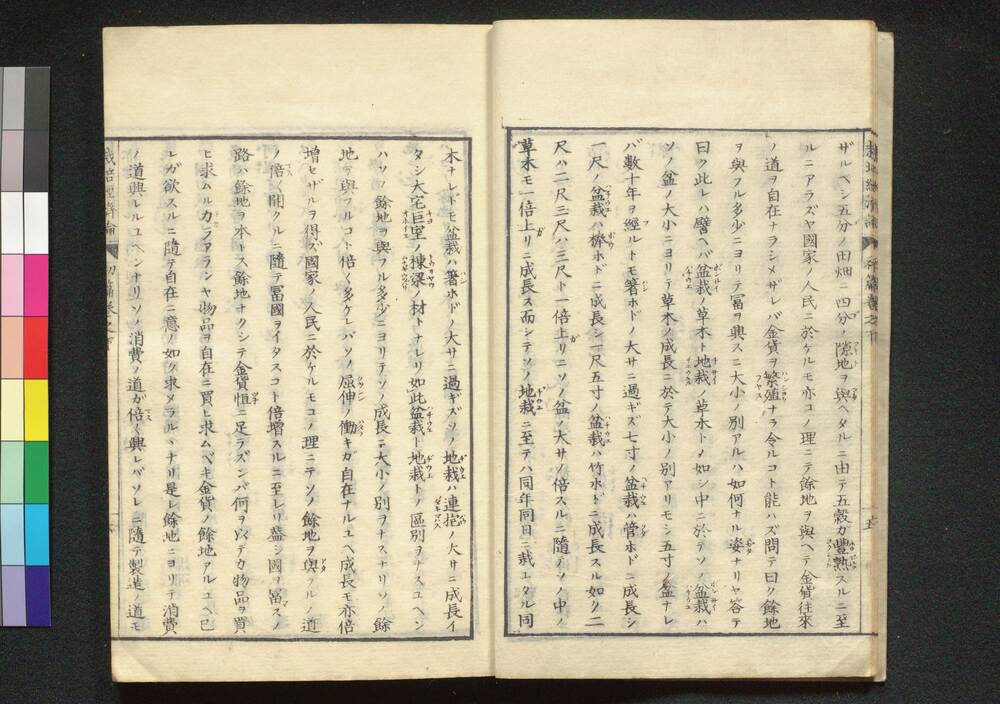 ザルベシ五分ノ田畑ニ四分ノ隙地ヲ與ヘタルニ由テ五穀ガ豐熟スルニ至
ルニアラズヤ國家ノ人民ニ於ケルモ亦コノ理ニテ餘地ヲ與ヘテ金貨往來
ノ道ヲ自在ナラシメザレバ金貨ヲ繁殖ナラ令ルコト能ハズ問テ曰ク餘地
ヲ與フル多少ニヨリテ冨ヲ興スニ大小ノ別アルハ如何ナル姿ナリヤ答テ
曰ク此レハ譬ヘバ盆栽ノ草木ト地栽ノ草木トノ如シ中ニ於テソノ盆栽ハ
ソノ盆ノ大小ニヨリテ草木ノ成長ニ於テ大小ノ別アリモシ五寸ノ盆ナレ
バ數十年ヲ經ルトモ箸ホドノ大サニ過ギズ七寸ノ盆栽ハ管ホドニ成長シ
一尺ノ盆栽ハ棒ホドニ成長シ一尺五寸ノ盆栽ハ竹ホドニ成長スル如ク二
尺ハ二尺三尺ハ三尺ト一倍上リニソノ盆ノ大サノ倍スルニ隨テソノ中ノ
草木モ一倍上リニ成長ス而シテソノ地栽ニ至テハ同年同日ニ栽エタル同
木ナレドモ盆栽ハ箸ホドノ大サニ過ギズソノ地栽ハ連抱ノ大サニ成長イ
タシ大宅巨室ノ棟梁ノ材トナレリ如此盆栽ト地栽トノ區別ヲナスユヘン
ハソノ餘地ヲ與フル多少ニヨリテソノ成長ニ大小ノ別ヲナスナリソノ餘
地ヲ與フルコト倍〱多ケレバソノ屈伸ノ働キガ自在ナルユヘ成長モ亦倍
増セザルヲ得ズ國家ノ人民ニ於ケルモコノ理ニテソノ餘地ヲ與フルノ道
ノ倍〱開クルニ隨テ冨國ヲイタスコト倍増スルニ至レリ盖シ國ヲ冨スノ
路ハ餘地ヲ本トス餘地ナクシテ金貨恒ニ足ラズンバ何ヲ以テカ物品ヲ買
ヒ求ムルカラアランヤ物品ヲ自在ニ買ヒ求ムベキ金貨ノ餘地アルユヘ己
レガ欲スルニ隨テ自在ニ意ノ如ク求メラルヽナリ是レ餘地ニヨリテ消費
ノ道興レルユヘンナリソノ消費ノ道ガ倍〱興レバソレニ隨テ製造ノ道モ
栽培經濟論 初篇卷之下